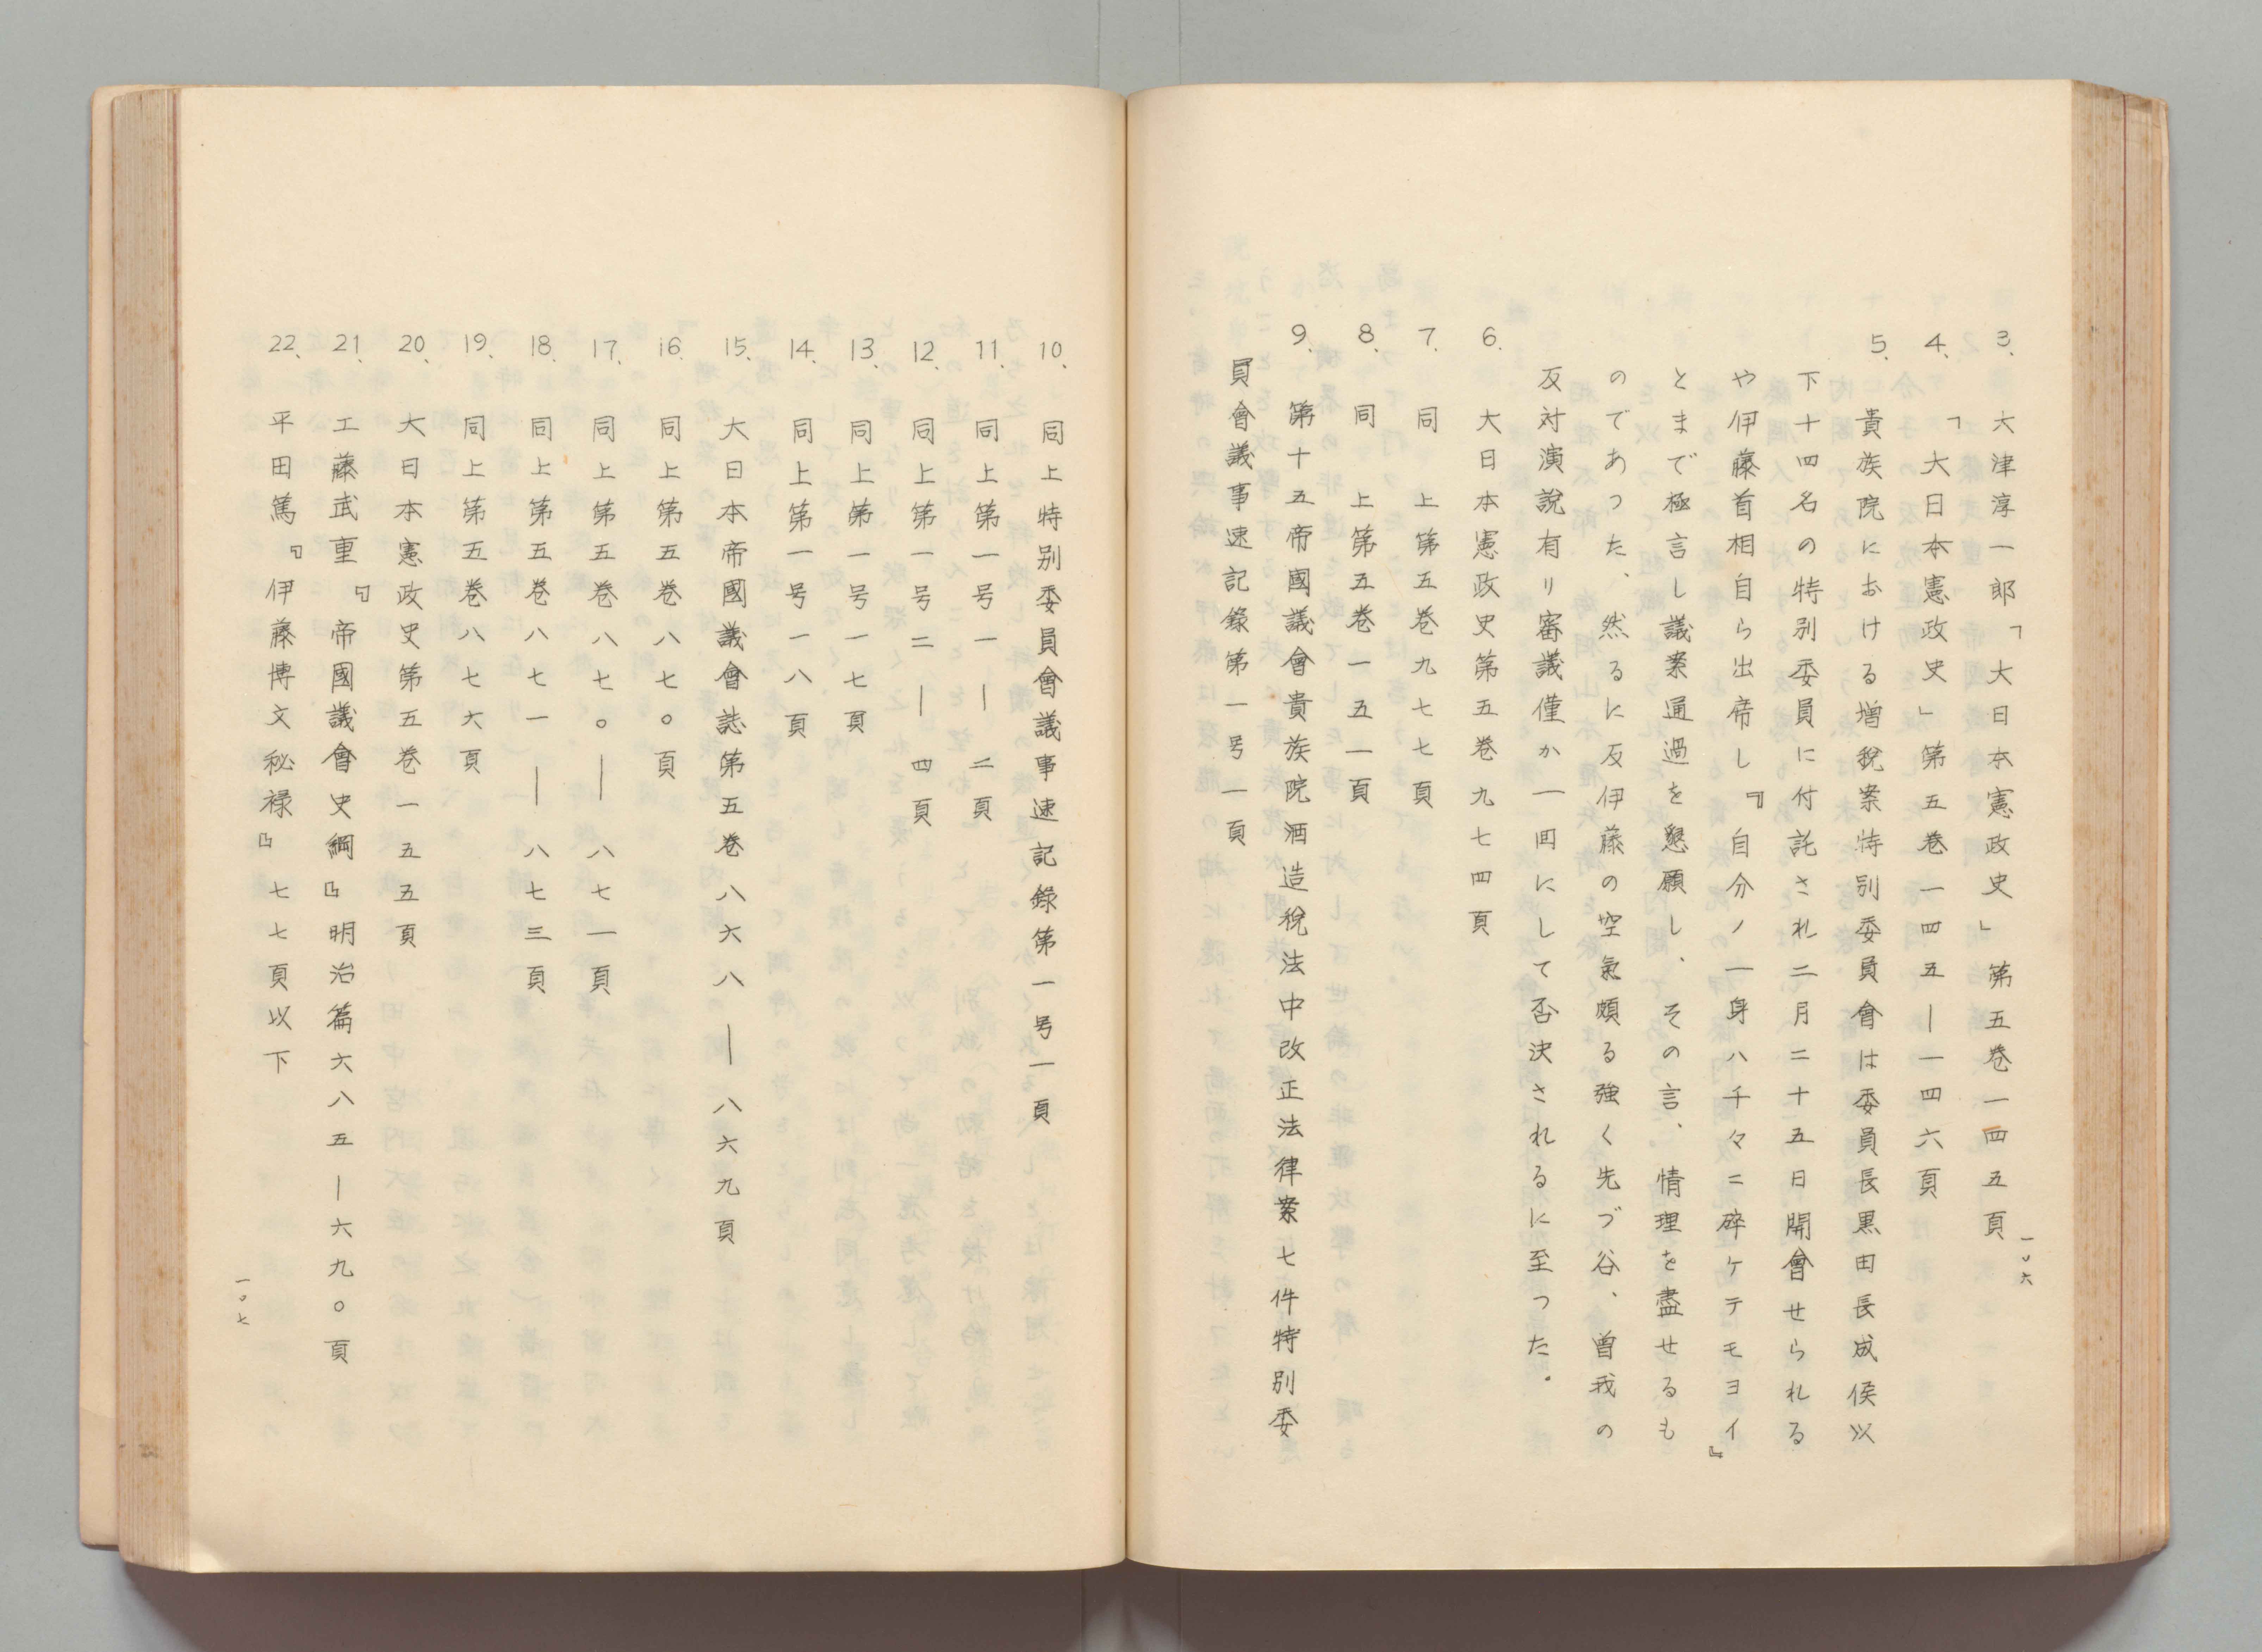 3、大津淳一郎「大日本憲政史」第五巻一四五頁
4、「大日本憲政史」第五巻一四五―一四六頁
5、貴族院における増税案特別委員會は委員長黒田長成侯以
下十四名の特別委員に付託され二月二十五日開會せられる
や伊藤首相自ら出帝し『自分ノ一身ハ千々ニ碎ケテモヨイ』
とまで極言し議案通過を懇願し、その言、情理を盡せるも
のであった、然るに反伊藤の空氣頗る強く先づ谷、曽我の
反対演説有り審議僅か一回にして否決されるに至った。
6、大日本憲政史第五巻九七四頁
7、同上第五巻九七七頁
8、同上第五巻一五一頁
9、第十五帝國議會貴族院酒造税法中改正法律案七件特別委
員會議事速記錄第一号一頁
一〇六
10、同上特別委員會議事速記錄第一号一頁
11、同上第一号一―二頁
12、同上第一号二―四頁
13、同上第一号一七頁
14、同上第一号一八頁
15、大日本帝國議會誌第五巻八六八―八六九頁
16、同上第五巻八七〇頁
17、同上第五巻八七〇―八七一頁
18、同上第五巻八七一―八七三頁
19、同上第五巻八七六頁
20、大日本憲政史第五巻一五五頁
21、工藤武重『帝國議會史綱』明治篇六八五―六九〇頁
22、平田篤『伊藤博文秘禄』七七頁以下
一〇七